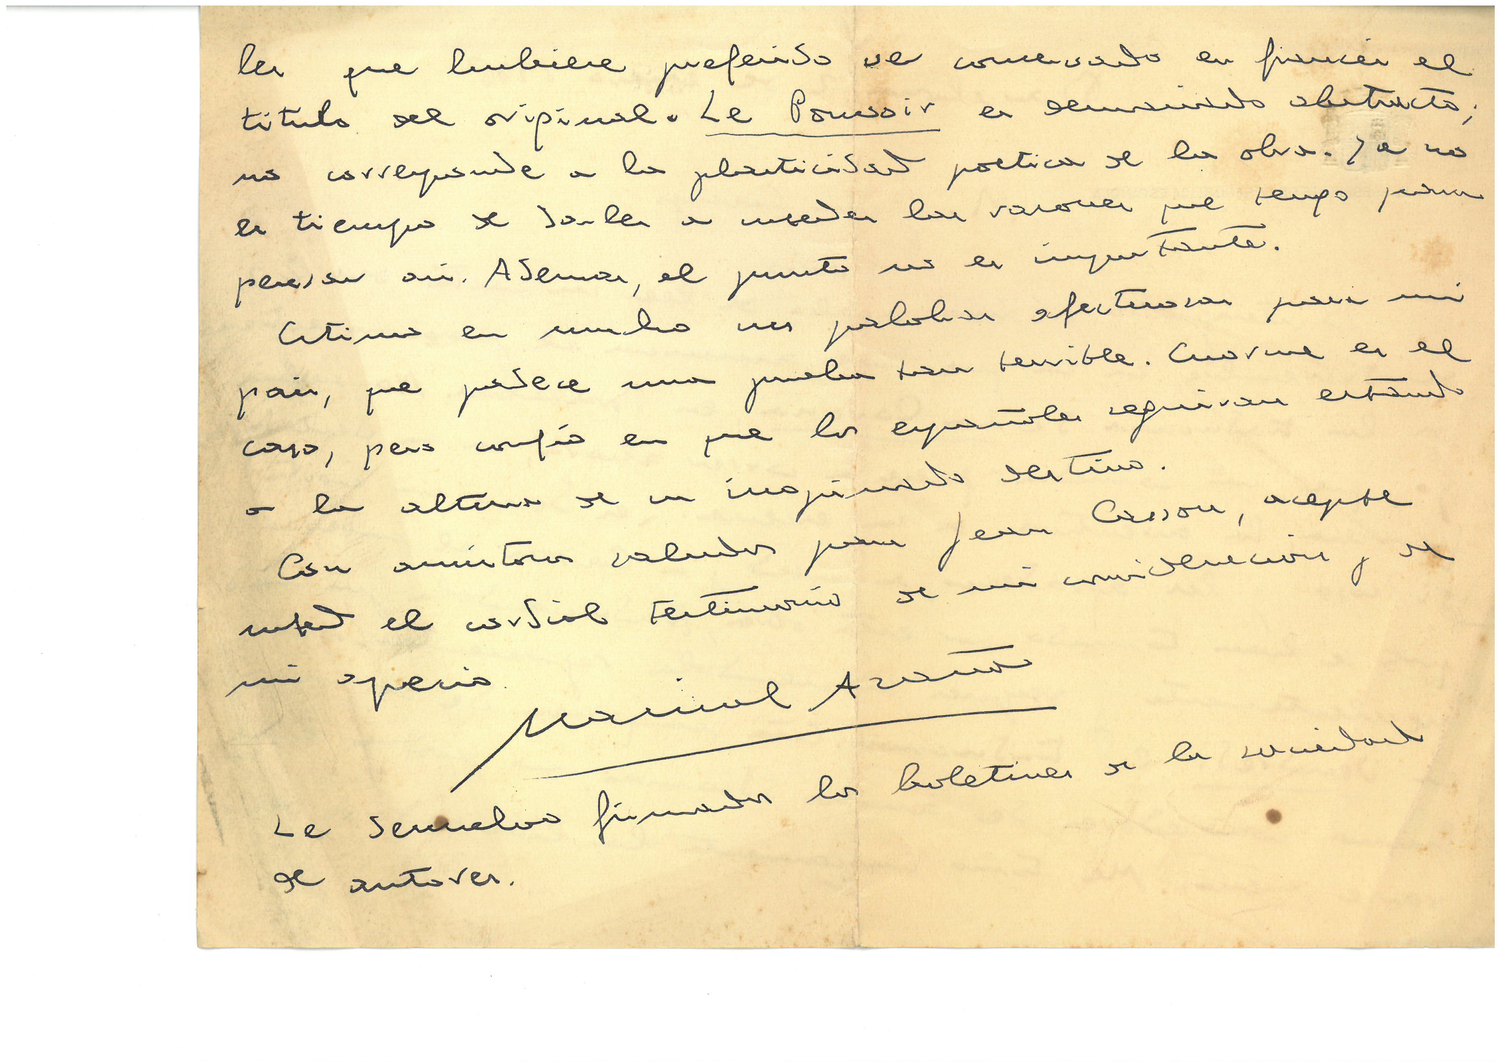 les que hubiese preferido ver conservado en francés el
título del original. Le Pouvoir es demasiado abstracto;
no corresponde a la plasticidad poética de la obra. Ya no
es tiempo de darles a ustedes las razones que tengo para
pensar así. Además, el punto no es importante.
Estimo en mucho sus palabras afectuosas para mi
país, que padece una prueba tan terrible. Enorme es el
caso, pero confío en que los españoles seguirán estando
a la altura de su inopinado destino.
Con amistosos saludos para Jean Cassou, acepte
usted el cordial testimonio de mi consideración y de
mi aprecio
Manuel Azaña
Le devuelvo firmados los boletines de la sociedad
de autores.